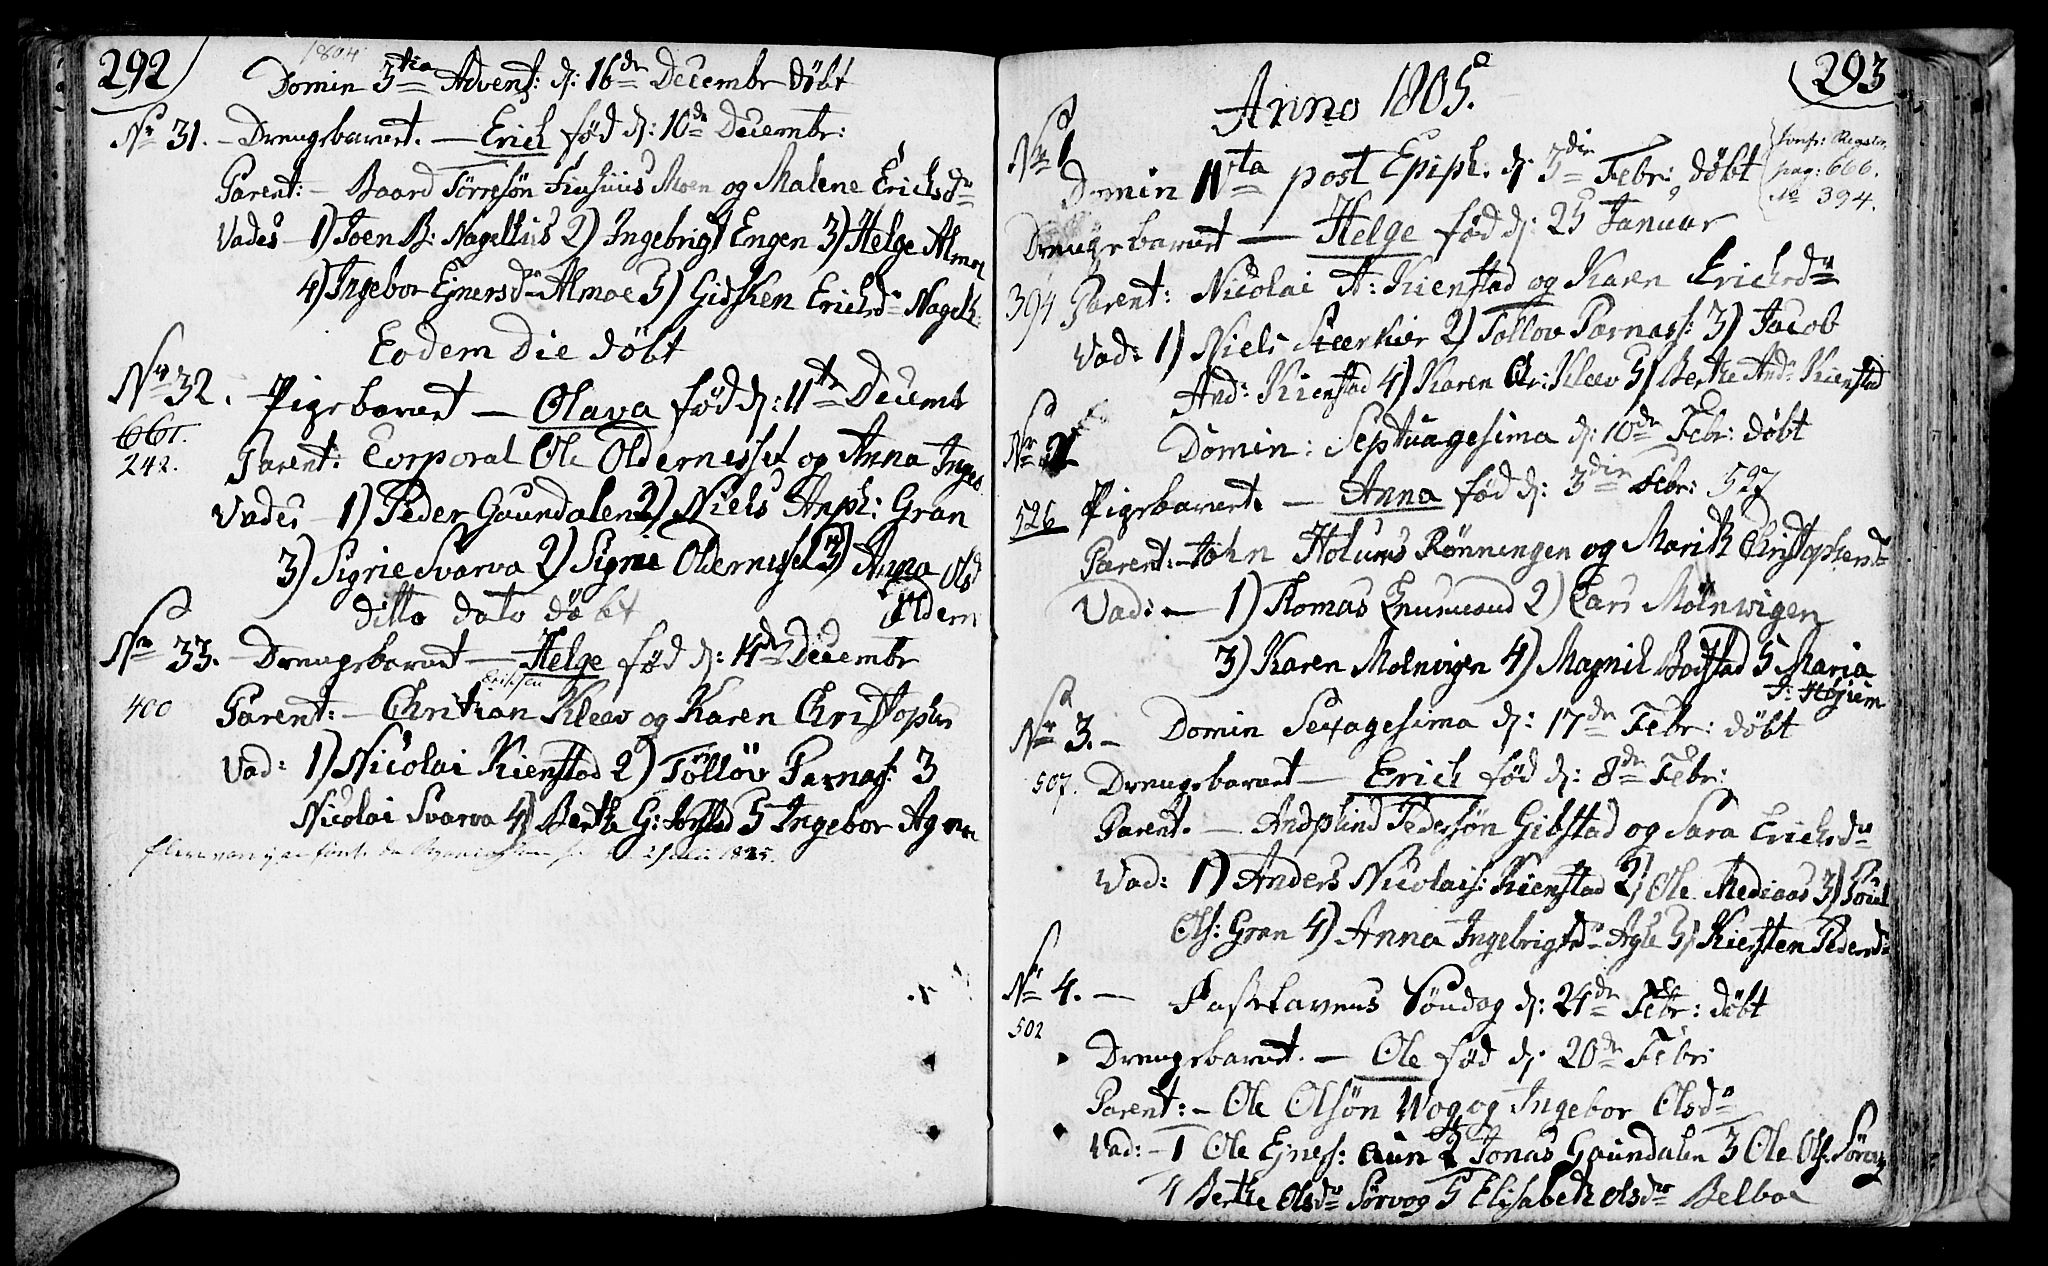 292
1804
Domin 3tia Advent: d: 16de Decembr døbt
No 31. - Drengebarnet. - Erich fød d: 10de Decembr:
Parent: - Baard Törresön Moen og Malene Erichsdr
Vades - 1) Joen B: Nagelhus 2) Ingebrigt Engen 3) Helge Almoe
4) Ingebor Ejnersdr Almoe 5) Gidsken Erichsdr Nagelh:
Eodem Die døbt
No 32. Pigebarnet - Olava fød d: 11te Decembr
661.
242.
Parent: Corporal Ole Oldernesset og Anna Ingeb
Vades - 1) Peder Gaundalen 2) Niels Anph: Gran
3) Sigrie Svarva 2) Sigrie Oldernesset 3) Anna Olsd
Oldern
ditto dato døbt
No 33. - Drengebarnet - Helge fød d: 14de Decembr
Eriksen
400 Parent: - Christian Kleev og Karen Christopher
Vad: 1) Nicolai Kienstad 2) Tölløv Parnas: 3
Nicolai Svarva 4) Berthe G: 5 Ingebor Agnæs
1825.
293
Anno 1805.
No 1
Domin IVta post Epiph. d: 3die Febr: døbt
Confr: Registr.
pag: 666.
No 394.
Drengebarnet - Helge fød d: 25 Januar
394 Parent: Nicolai A: Kienstad og Karen Erichsdr
Vad: 1) Niels 2) Tollov Parnass: 3) Jacob
And: Kienstad 4) Karen Chr: Kleev 5) Berthe Andr Kienstad
No 2 Domin: Septuagesima d: 10de Febr: døbt
526 Pigebarnet - Anna fød d: 3die Febr: 527
Parent: - John Holums Rønningen og Marith Christophersdr
Vad: - 1) Thomas 2) Lars Mölnvigen
3) Karen Molnvigen 4) Magnil Bostad 5 Maria
J: Højem
No 3. - Domin Sexagesima d: 17de Febr: døbt
507. Drengebarnet - Erich fød d: 8de Febr:
Parent. - Andplind Pedersøn Gibstad og Sara Erichsdr
Vad: 1) Anders Nicolais: Kienstad 2) Ole Mediaas 3) Poul
Ols: Gran 4) Anna Ingebrigtsdr Agle 5) Kiersten Pedersdr
No 4. - Fastelavens Søndag d: 24de Febr: døbt
502
Drengebarnet. - Ole fød d: 20de Febr:
Parent: - Ole Olsøn Wog og Ingebor Olsdr
Vad: - 1 Ole Ejners: Aün 2 Jonas Gaundalen 3 Ole Ols: Sørvog
4 Berthe Olsdr Sørvog 5 Elisabeth Olsdr Belboe